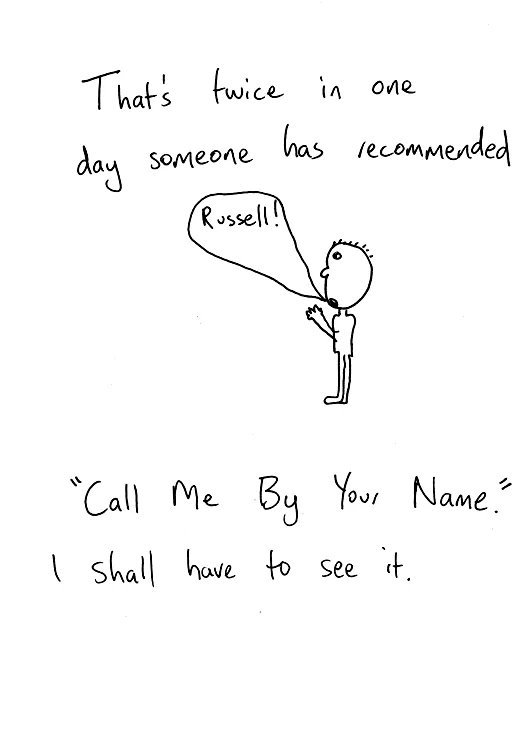 That's twice in one
day someone has recommended
Russell!
"Call Me By Your Name."
I shall have to see it.